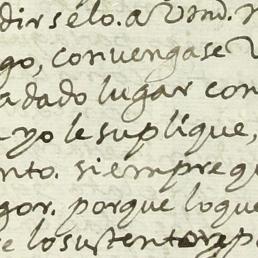 dirselo. a Vmd.
go, convengase V
a dado lugar con
yo le suplique,
nto. siempre q
gor. porque loque
e lo sustento